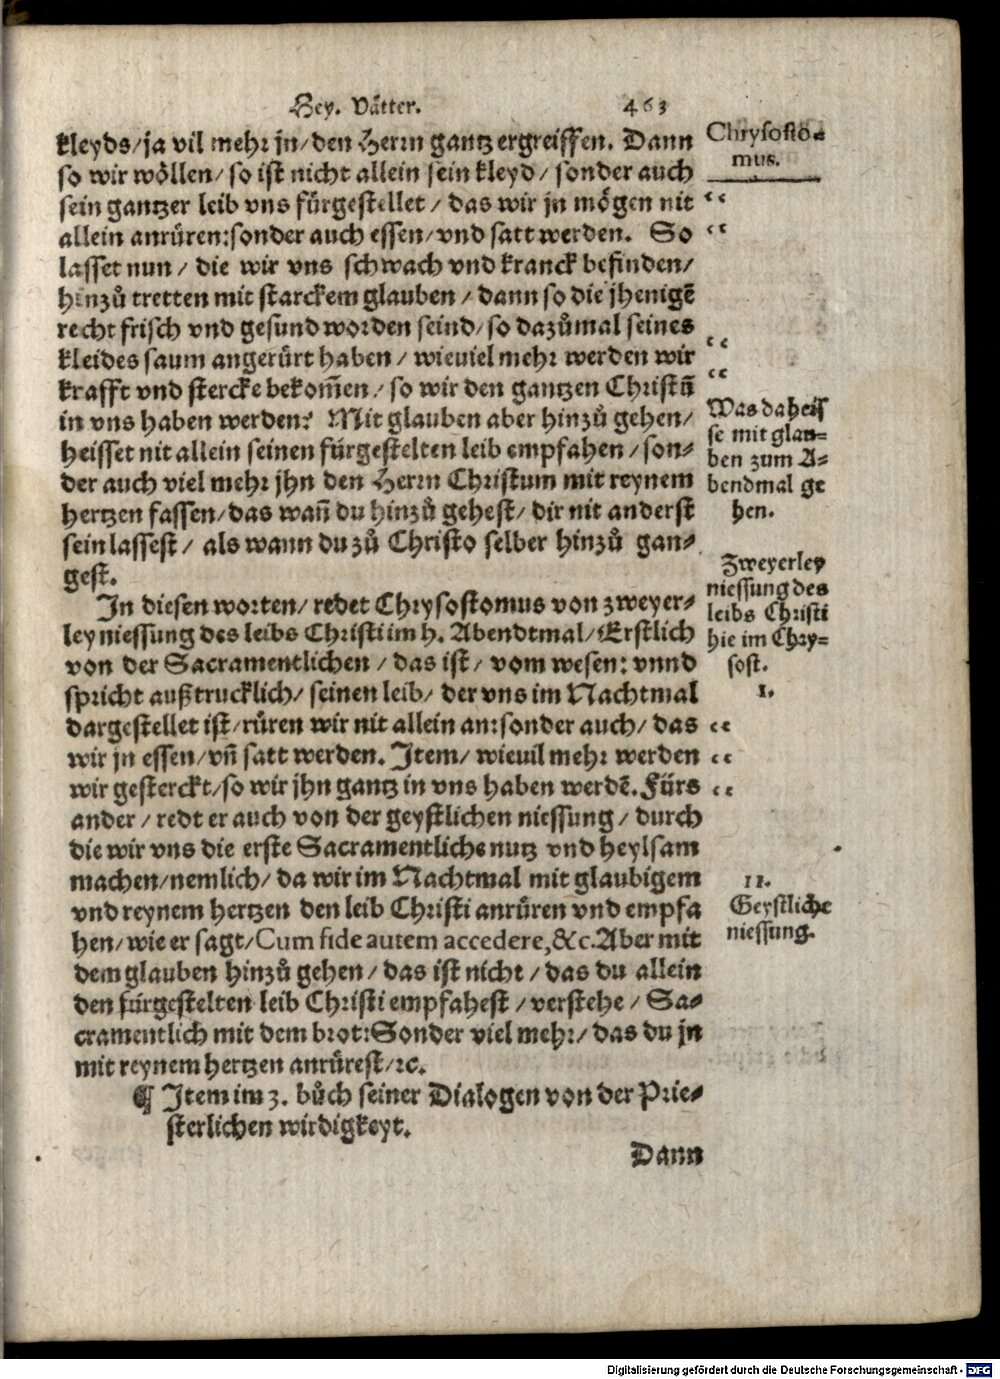 Hey. Vätter. 463
kleyds/ja vil mehr jn/den Herrn gantz ergreiffen. Dann
so wir wöllen/so ist nicht allein sein kleyd/sonder auch
sein gantzer leib vns fürgestellet/das wir jn mögen nit
allein anrüren:sonder auch essen/vnd satt werden. So
lasset nun/die wir vns schwach vnd kranck befinden/
hinzů tretten mit starckem glauben/dann so die jhenigē
recht frisch vnd gesund worden seind/so dazůmal seines
kleides saum angerürt haben/wieuiel mehr werden wir
krafft vnd stercke bekom̄en/so wir den gantzen Christū
in vns haben werden? Mit glauben aber hinzů gehen/
heisset nit allein seinen fürgestelten leib empfahen/son-
der auch viel mehr jhn den Herrn Christum mit reynem
hertzen fassen/das wan̄ du hinzů gehest/dir nit anderst
sein lassest/als wann du zů Christo selber hinzů gan-
gest.
Chrysosto-
mus.
“
“
“
“
Was da heis
se mit glau-
ben zum A-
bendmal ge
hen.
In diesen worten/redet Chrysostomus von zweyer-
ley niessung des leibs Christi im h. Abendtmal/Erstlich
von der Sacramentlichen/das ist/vom wesen: vnnd
spricht außtrucklich/seinen leib/der vns im Nachtmal
dargestellet ist/rüren wir nit allein an:sonder auch/das
wir jn essen/vn̄ satt werden. Item/wieuil mehr werden
wir gesterckt/so wir jhn gantz in vns haben werdē. Fürs
ander/redt er auch von der geystlichen niessung/durch
die wir vns die erste Sacramentliche nutz vnd heylsam
machen/nemlich/da wir im Nachtmal mit glaubigem
vnd reynem hertzen den leib Christi anrüren vnd empfa
hen/wie er sagt/Cum fide autem accedere,&c. Aber mit
dem glauben hinzů gehen/das ist nicht/das du allein
den fürgestelten leib Christi empfahest/verstehe/Sa-
cramentlich mit dem brot:Sonder viel mehr/das du jn
mit reynem hertzen anrürest/ꝛc.
Zweyerley
niessung des
leibs Christi
hie im Chry-
sost.
1.
“
“
“
11.
Geystliche
niessung.
¶ Item im 3. bůch seiner Dialogen von der Prie-
sterlichen wirdigkeyt.
Dann
Digitalisierung gefördert durch die Deutsche Forschungsgemeinschaft - DFG